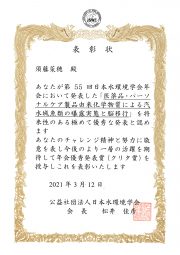 表彰状
須藤菜穂 殿
あなたが第55回日本水環境学会年
会において発表した「医薬品・パーソ
ナルケア製品由来化学物質による汽
水域魚類の曝露実態と脳移行」を将
来性のある極めて優秀な発表と認め
ます
あなたのチャレンジ精神と努力に敬
意を表し今後のより一層の活躍を期
待して年会優秀発表賞(クリタ賞)を
授与しこれを表彰いたします
2021年3月12日
公益社団法人日本水環境学会
会長 松井佳彦